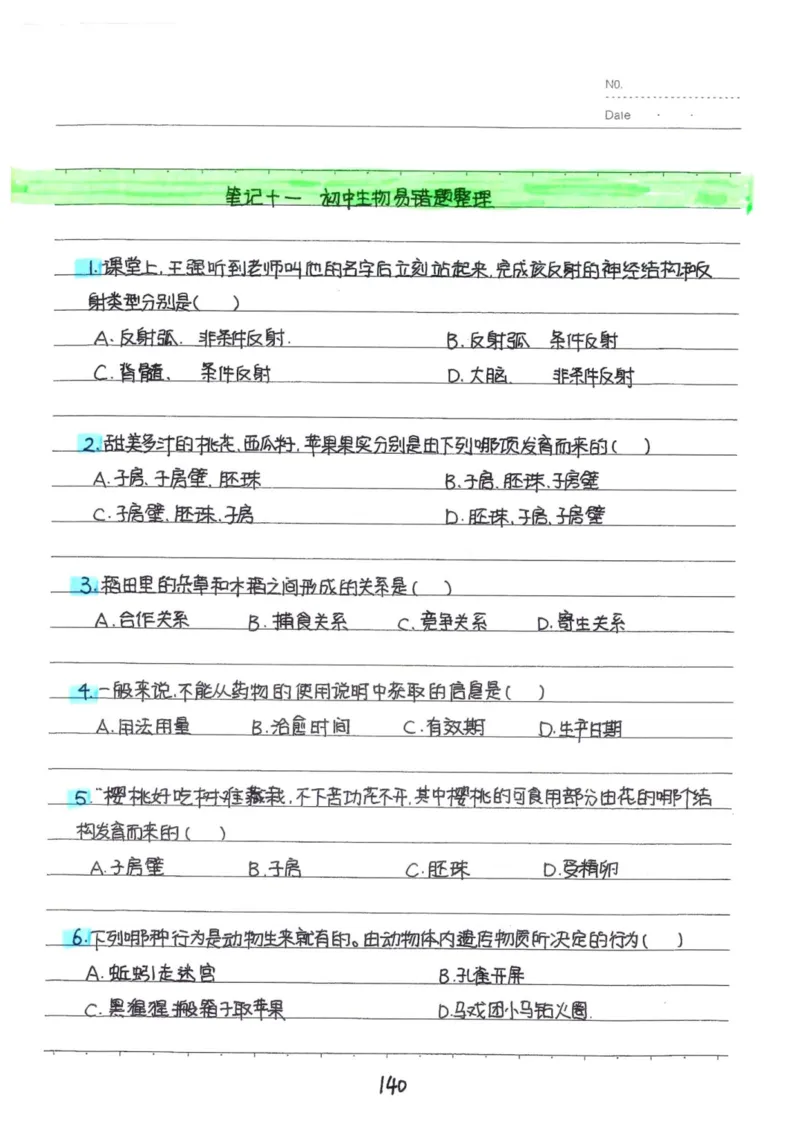 NO.
Date
笔记十一 初中生物易错题整理
1.课堂上,王强听到老师叫他的名字后立刻站起来,完成该反射的神经结构和反
射类型分别是( )
A.反射弧. 非条件反射. B.反射弧 条件反射
C.脊髓、 条件反射 D.大脑. 非条件反射
2.甜美多汁的桃花,西瓜籽,苹果果实分别是由下列哪项发育而来的( )
A.子房、子房壁、胚珠 B.子房.胚珠.子房壁
C.子房壁、胚珠、子房 D.胚珠,子房,子房壁
3.稻田里的杂草和水稻之间形成的关系是( )
A.合作关系 B.捕食关系 C.竞争关系 D.寄生关系
4.一般来说,不能从药物的使用说明中获取的信息是( )
A.用法用量 B.治愈时间 C.有效期 D.生产日期
5."樱桃好吃树难栽,不下苦功花不开,其中樱桃的可食用部分由花的哪个结
构发育而来的( )
A.子房壁 B.子房 C.胚珠 D.受精卵
6.下列哪种行为是动物生来就有的。由动物体内遗传物质所决定的行为( )
A.蚯蚓走迷宫 B.孔雀开屏
C.黑猩猩搬箱子取苹果 D.马戏团小马钻火圈.
140